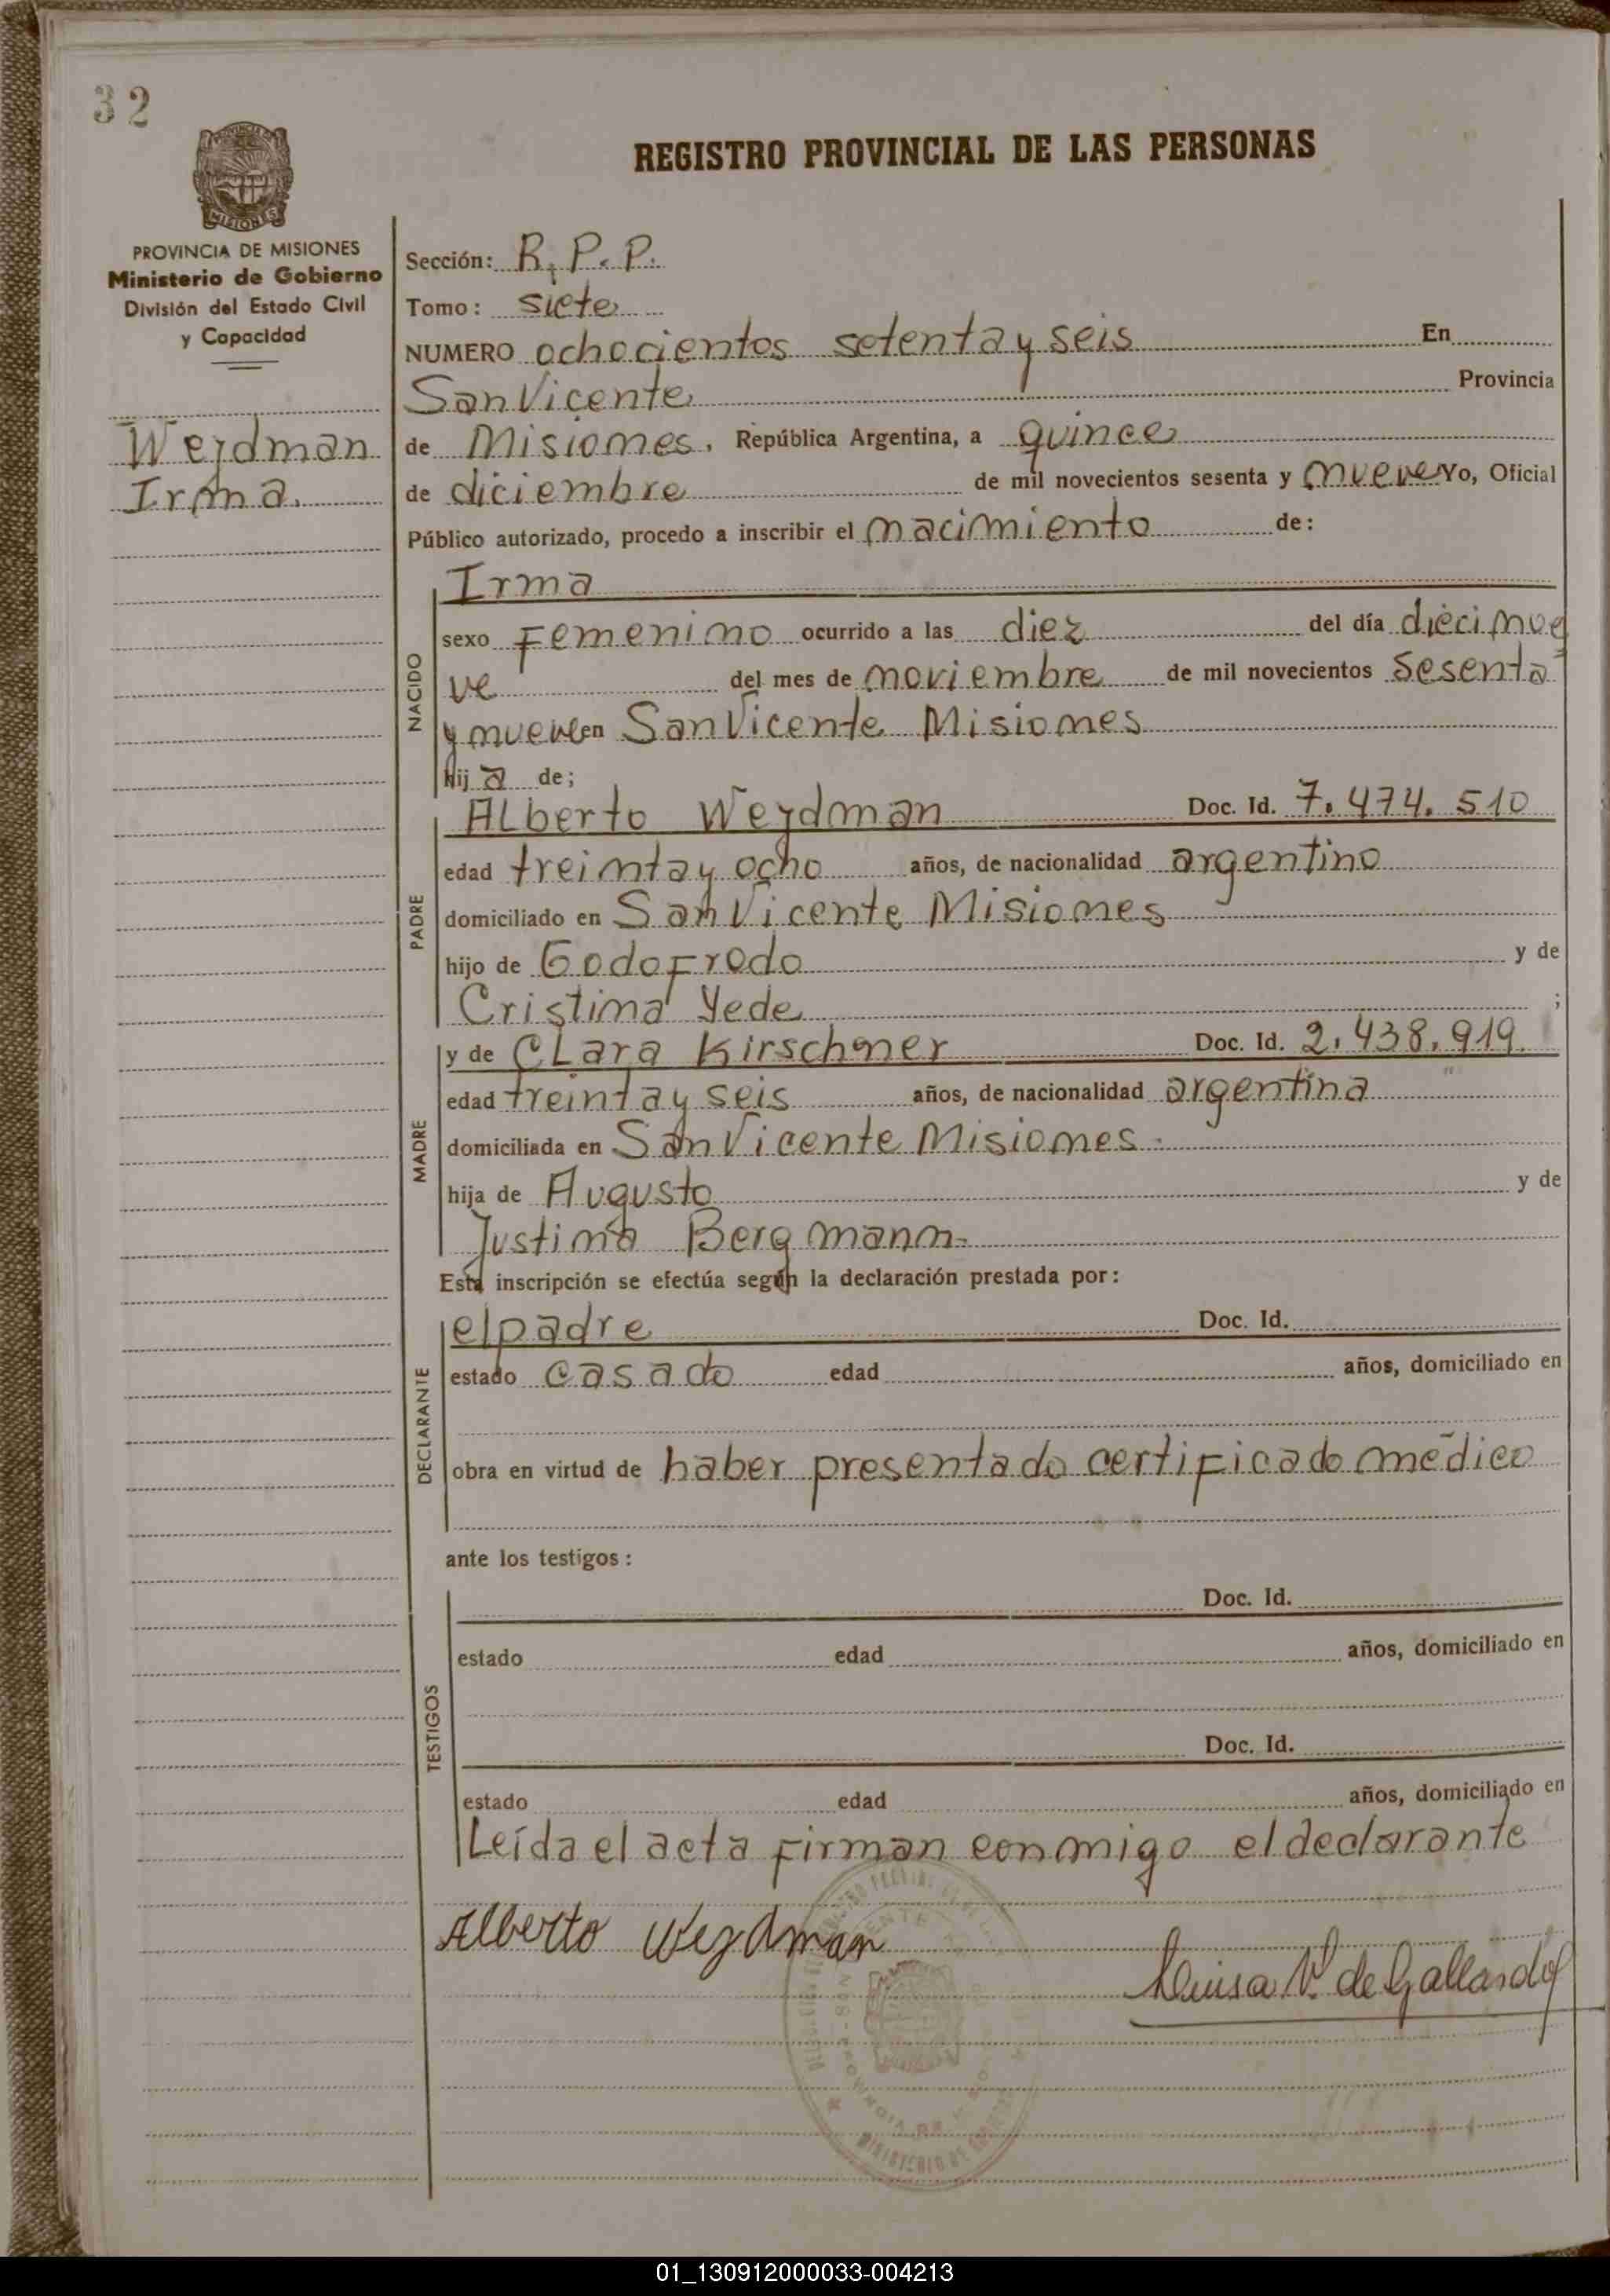 32
REGISTRO PROVINCIAL DE LAS PERSONAS
PROVINCIA DE MISIONES
MISIONES
PROVINCIA DE MISIONES
Ministerio de Gobierno
División del Estado Civil
y Capacidad
Weydman
Irma.
Sección: R. P. P.
Tomo: siete
NUMERO ochocientos setenta y seis En
San Vicente Provincia
de Misiones, República Argentina, a quince
de diciembre de mil novecientos sesenta y nueve Yo, Oficial
Público autorizado, procedo a inscribir el nacimiento de:
NACIDO
Irma
sexo Femenino ocurrido a las diez del día diecinue
ve del mes de noviembre de mil novecientos sesenta
y nueve en San Vicente Misiones
hija de;
PADRE
Alberto Weydman Doc. Id. 7.474.510
edad treinta y ocho años, de nacionalidad argentino
domiciliado en San Vicente Misiones
hijo de Godofredo y de
Cristina Yede ;
MADRE
y de Clara Kirschner Doc. Id. 2.438.919.
edad treinta y seis años, de nacionalidad argentina
domiciliada en San Vicente Misiones.
hija de Augusto y de
Justina Bergmann-
Esta inscripción se efectúa según la declaración prestada por:
DECLARANTE
el padre Doc. Id.
estado casado edad años, domiciliado en
obra en virtud de haber presentado certificado médico
ante los testigos:
TESTIGOS
Doc. Id.
estado edad años, domiciliado en
Doc. Id.
estado edad años, domiciliado en
Leída el acta firman conmigo el declarante
Alberto Weydman
Luisa V. de Gallardo
01_130912000033-004213